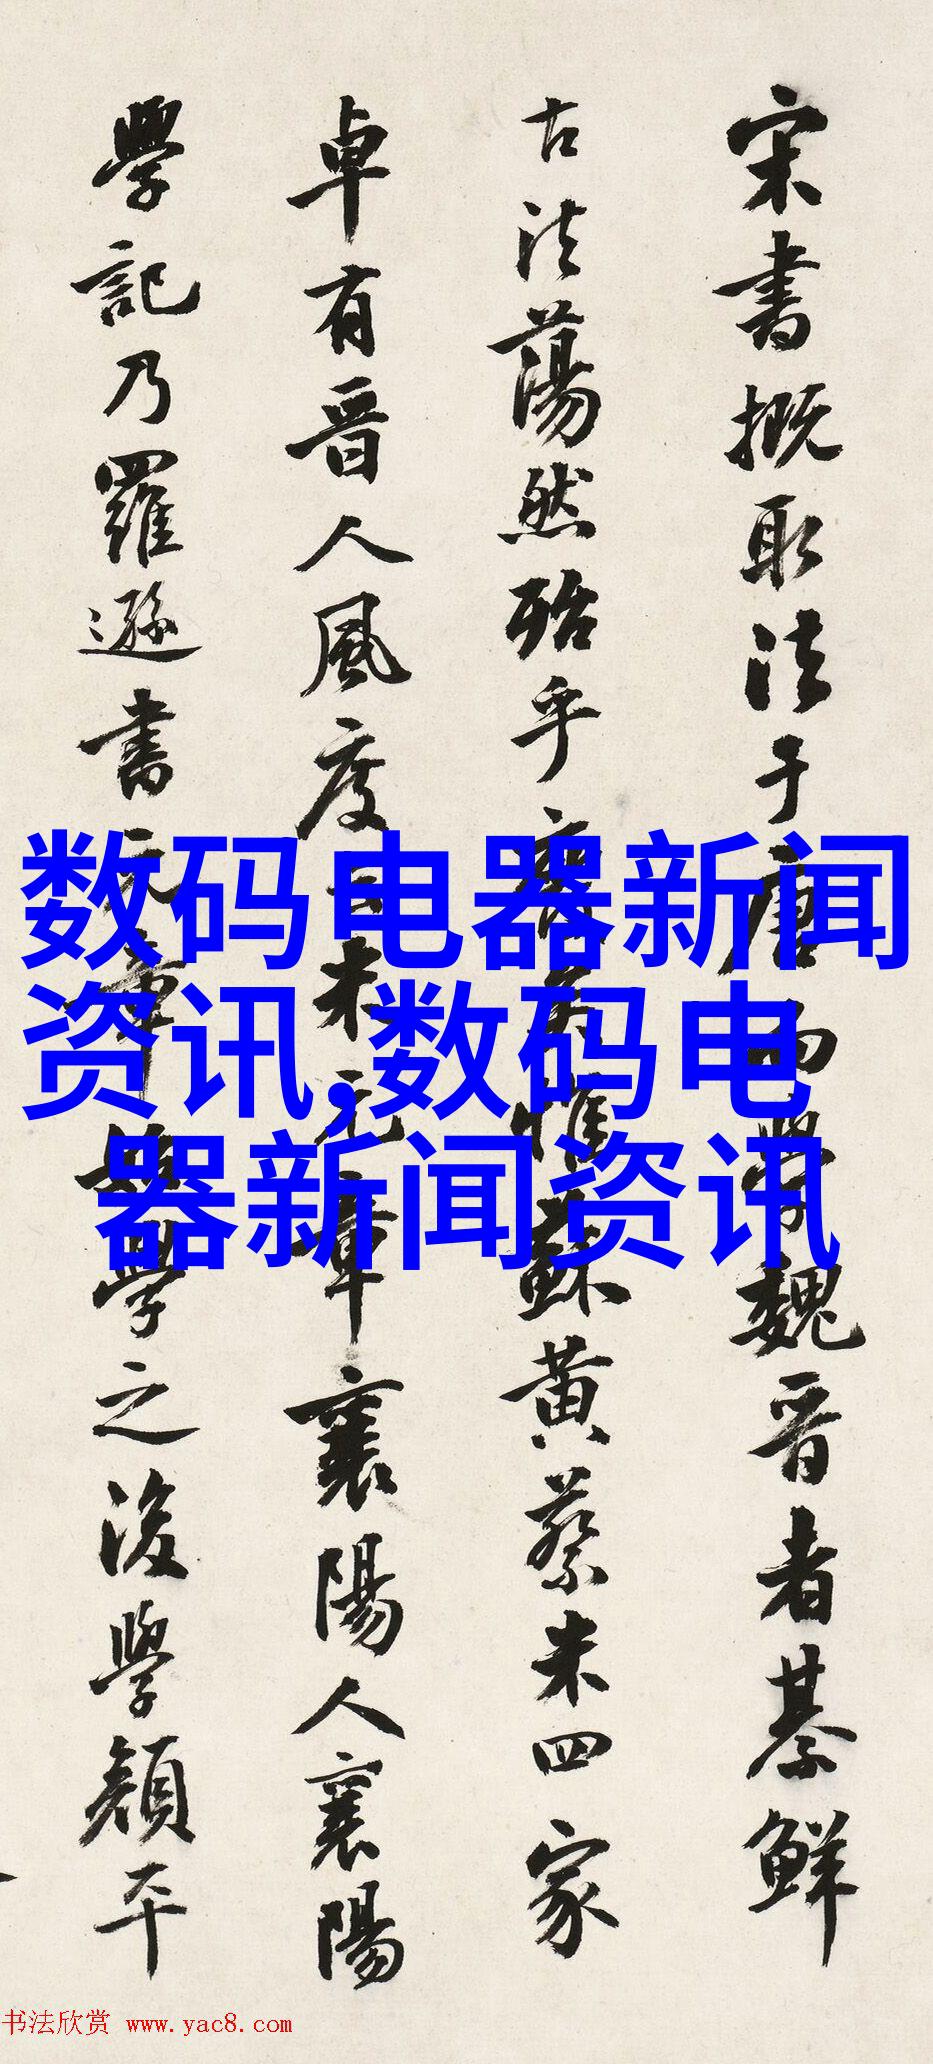 宋書概取法于唐而學魏晉者綦鮮
古法蕩然殆乎齊 惟蘇黃蔡米四家
卓有晉人風度 米元章襄陽人襄陽
學記乃羅遜書元章 學之後學顏平
数码电器新闻
资讯,数码电
器新闻资讯
书法欣赏 www.yac8.com